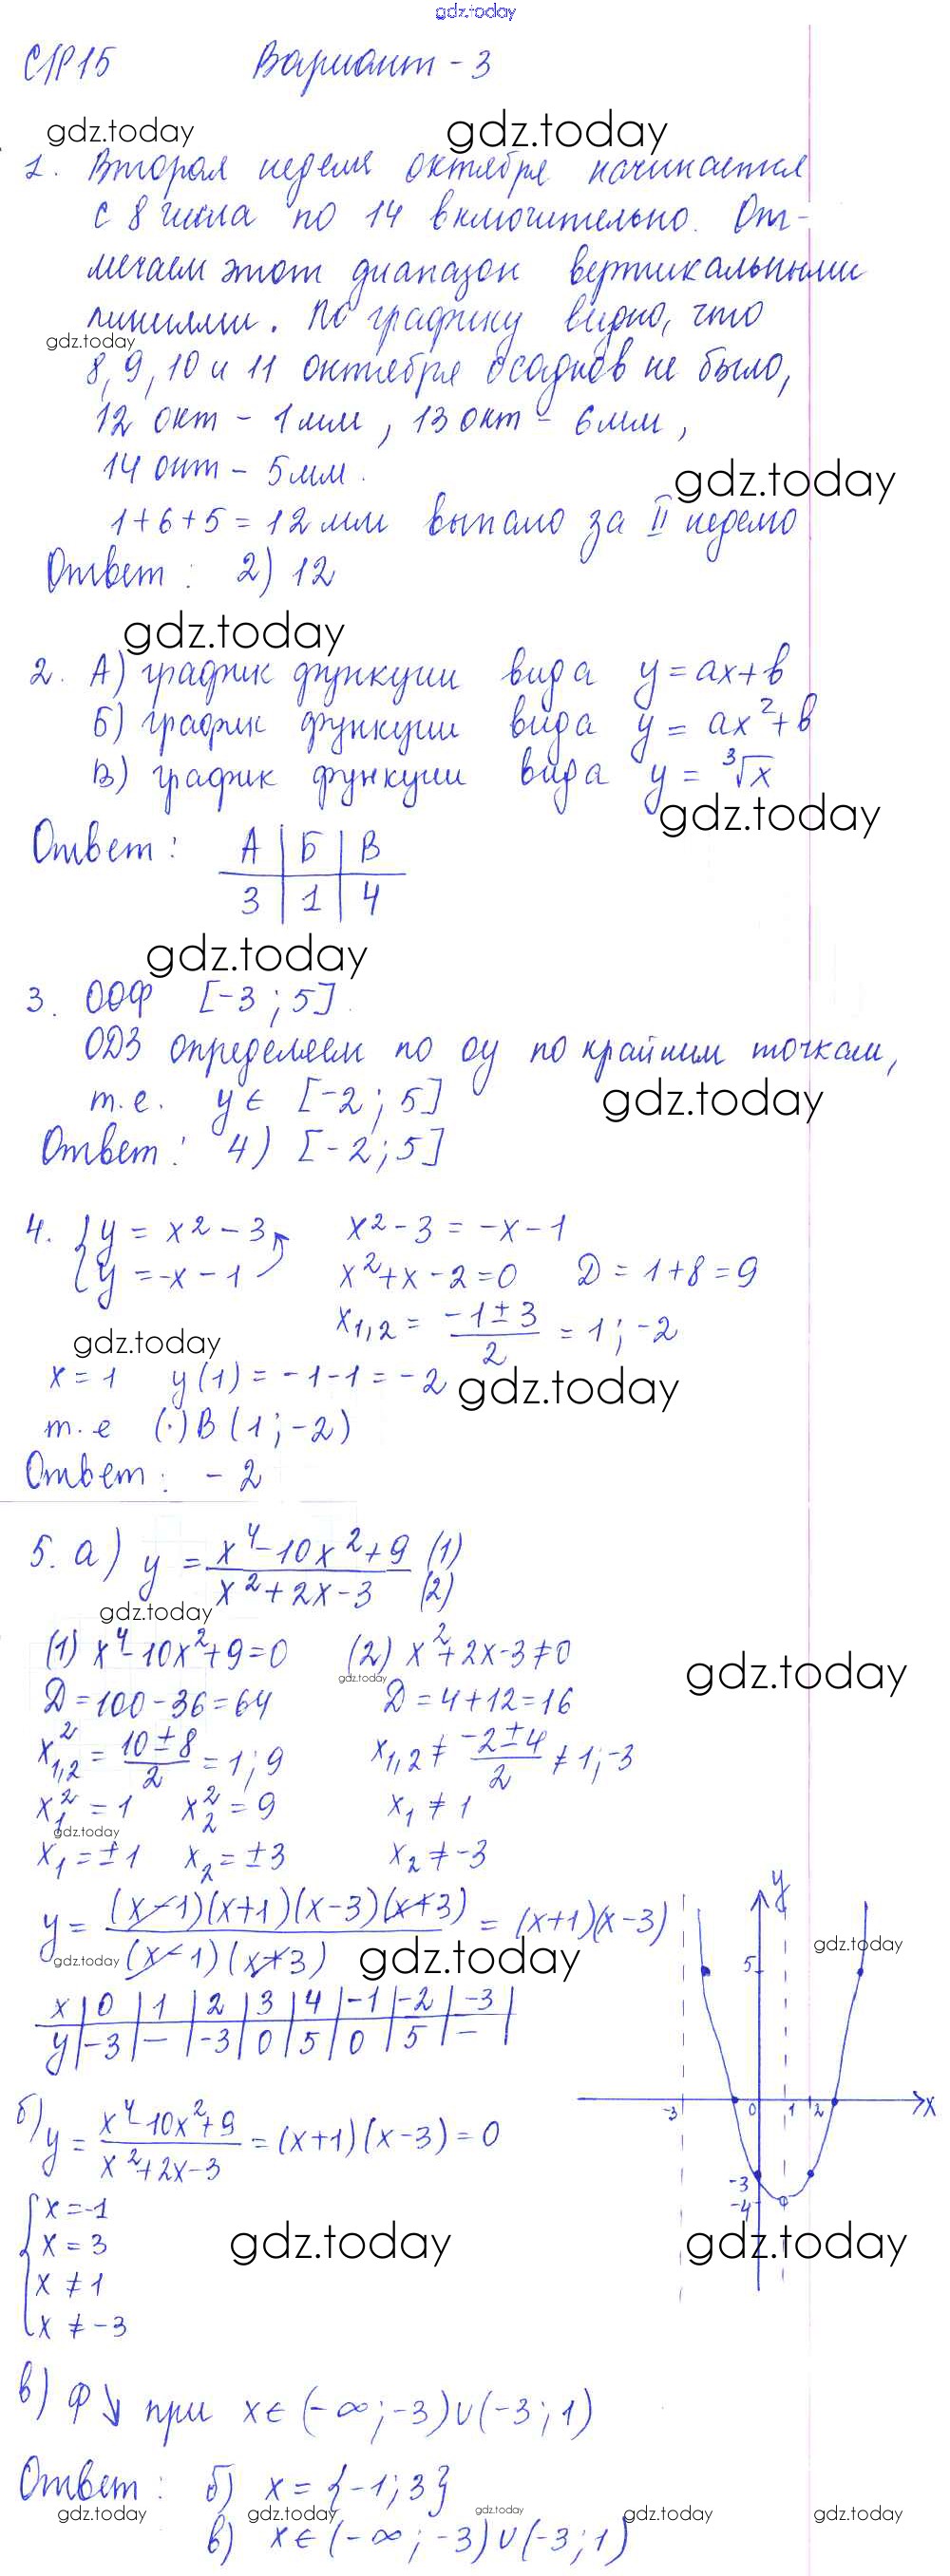 gdz.today
С/Р 15 Вариант - 3
gdz.today gdz.today
1. Вторая неделя октября начинается
с 8 числа по 14 включительно. От-
мечаем этот диапазон вертикальными
линиями. По графику видно, что
gdz.today
8, 9, 10 и 11 октября осадков не было,
12 окт - 1 мм, 13 окт - 6 мм,
14 окт - 5 мм.
gdz.today
1 + 6 + 5 = 12 мм выпало за II неделю
Ответ: 2) 12
gdz.today
2. А) график функции вида y = ax + b
Б) график функции вида y = ax² + b
В) график функции вида y = ³√x
gdz.today
Ответ: А | Б | В
3 | 1 | 4
gdz.today
3. ООФ [-3; 5].
ОДЗ определяем по оу по крайним точкам,
т.е. y ∈ [-2; 5]
gdz.today
Ответ: 4) [-2; 5]
4. { y = x² - 3 x² - 3 = -x - 1
{ y = -x - 1 x² + x - 2 = 0 D = 1 + 8 = 9
x₁,₂ = (-1 ± 3)/2 = 1; -2
gdz.today
x = 1 y(1) = -1 - 1 = -2
gdz.today
т.е (·) B (1; -2)
Ответ: -2
5. а) y = (x⁴ - 10x² + 9)/(x² + 2x - 3) (1) (2)
gdz.today
(1) x⁴ - 10x² + 9 = 0 (2) x² + 2x - 3 ≠ 0
gdz.today gdz.today
D = 100 - 36 = 64 D = 4 + 12 = 16
x²₁,₂ = (10 ± 8)/2 = 1; 9 x₁,₂ ≠ (-2 ± 4)/2 ≠ 1; -3
x₁² = 1 x₂² = 9 x₁ ≠ 1
gdz.today
x₁ = ±1 x₂ = ±3 x₂ ≠ -3
y = (x - 1)(x + 1)(x - 3)(x + 3)/(x - 1)(x + 3) = (x + 1)(x - 3)
gdz.today gdz.today gdz.today
x | 0 | 1 | 2 | 3 | 4 | -1 | -2 | -3 |
y | -3 | - | -3 | 0 | 5 | 0 | 5 | - |
y
5
-3 0 1 2 x
-3
-4
б) y = (x⁴ - 10x² + 9)/(x² + 2x - 3) = (x + 1)(x - 3) = 0
{ x = -1
x = 3
x ≠ 1
x ≠ -3
gdz.today gdz.today
в) Ф↘ при x ∈ (-∞; -3) ∪ (-3; 1)
Ответ: б) x = {-1; 3}
gdz.today gdz.today gdz.today gdz.today gdz.today
в) x ∈ (-∞; -3) ∪ (-3; 1)